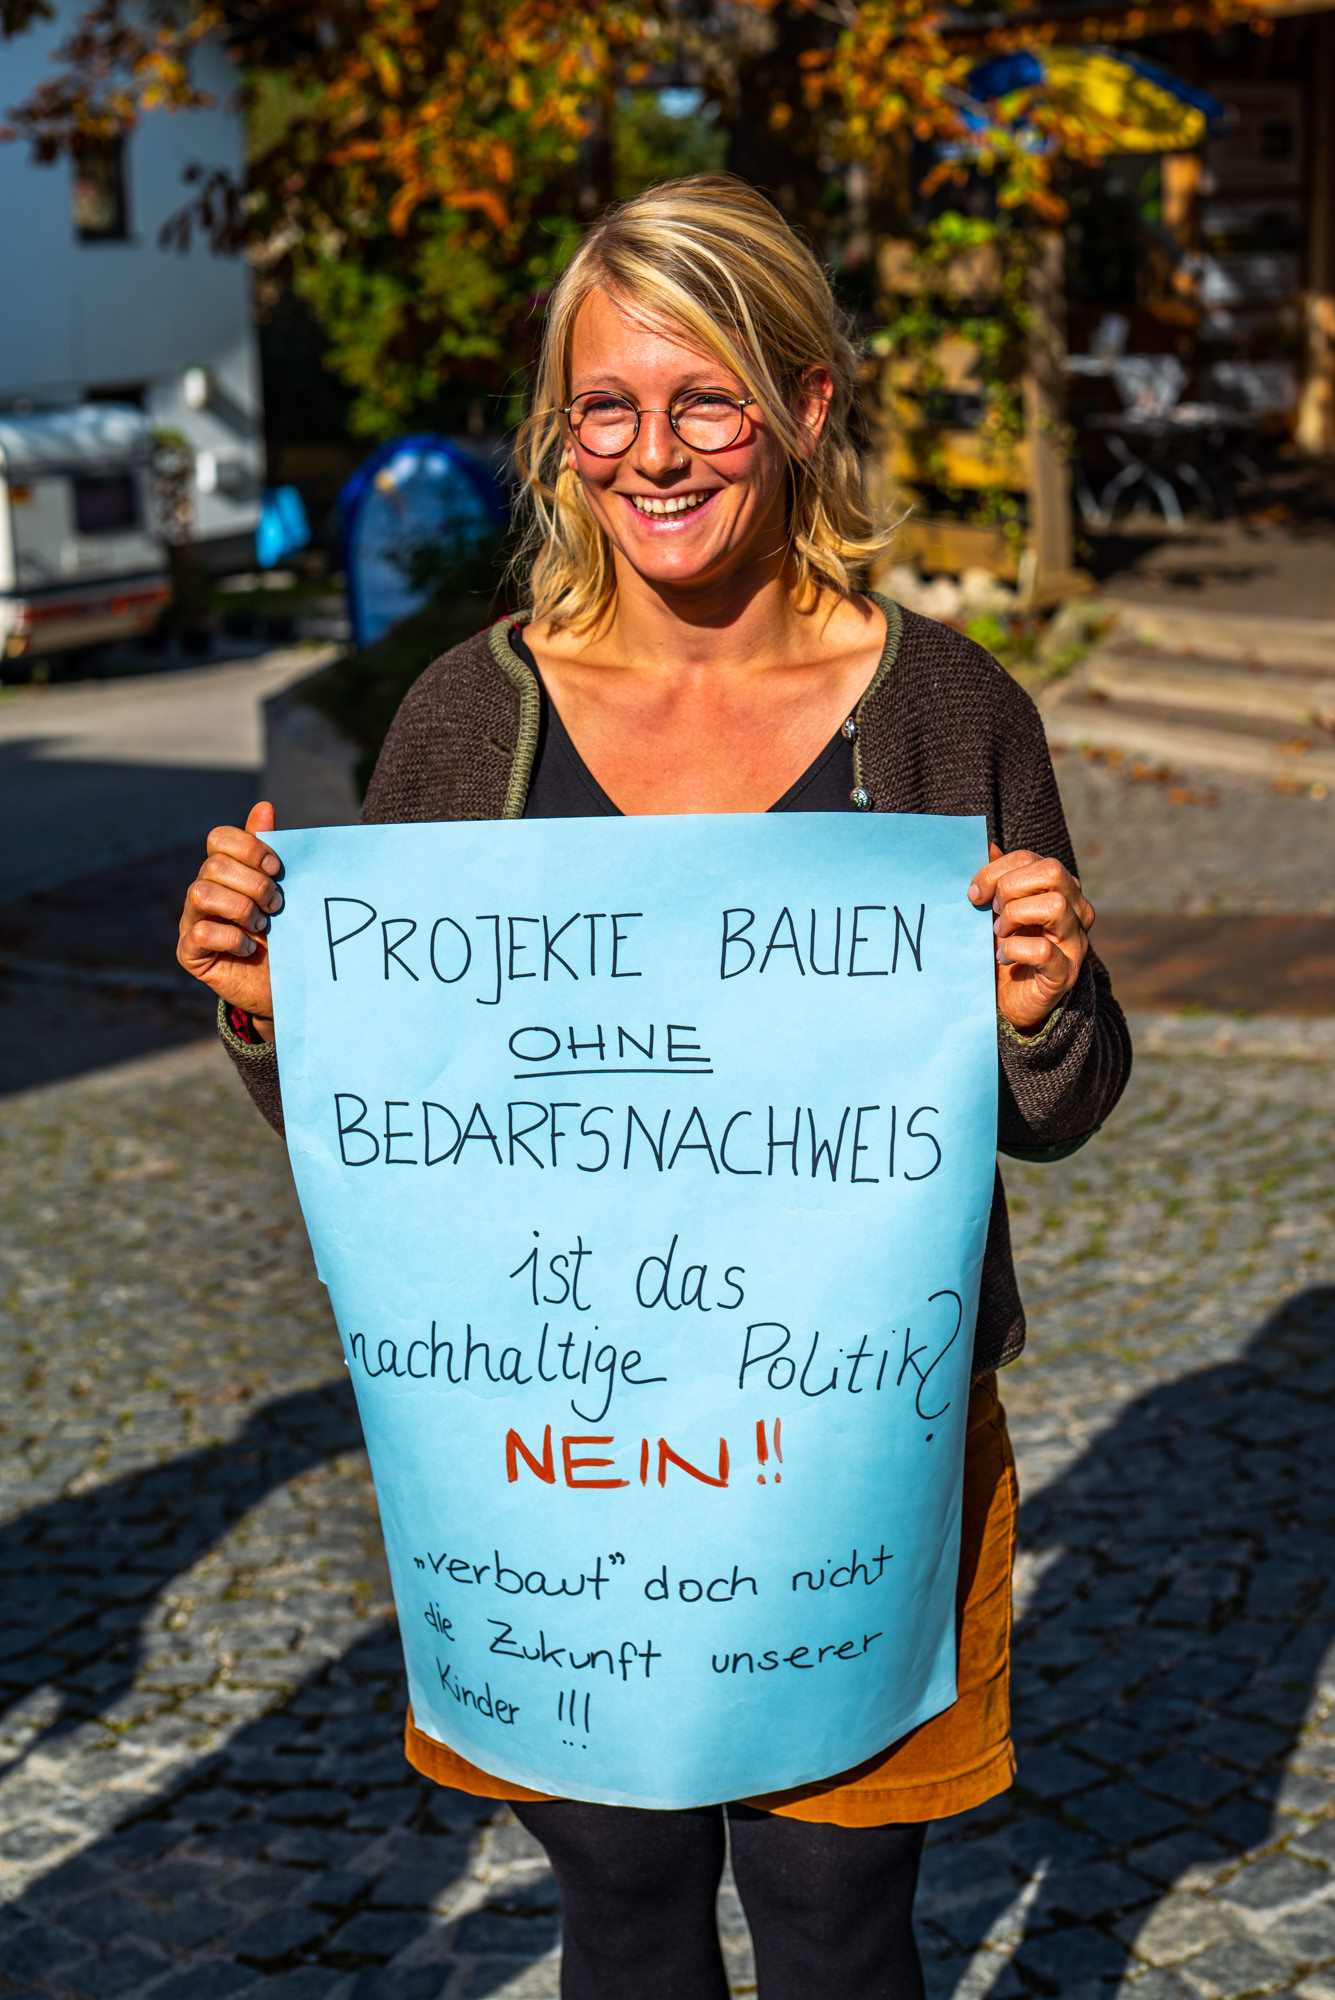 PROJEKTE BAUEN
OHNE
BEDARFSNACHWEIS
ist das
nachhaltige Politik?
NEIN!!
„verbaut” doch nicht
die Zukunft unserer
Kinder !!!